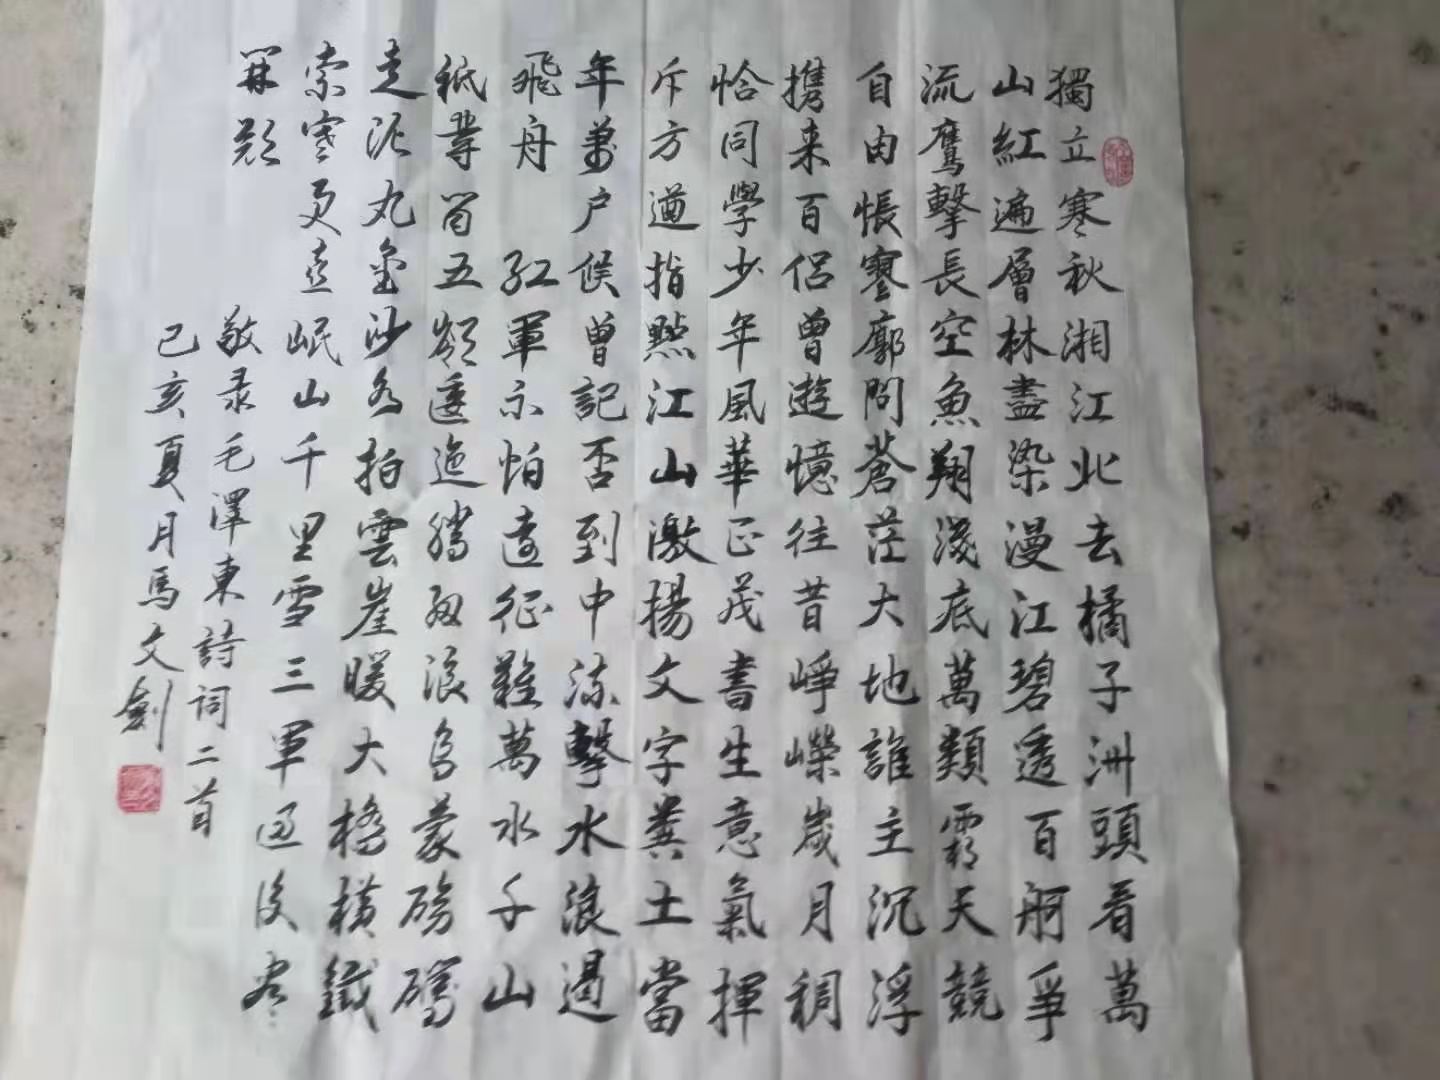 獨立寒秋湘江北去橘子洲頭看萬
山紅遍層林盡染漫江碧透百舸爭
流鹰擊長空魚翔淺底萬類霜天競
自由悵寥廓問蒼茫大地誰主沉浮
携来百侣曾遊憶往昔崢嶸歲月稠
恰同學少年風華正茂書生意氣揮
斥方遒指點江山激揚文字糞土當
年萬户侯曾記否到中流擊水浪遏
飛舟 紅軍不怕遠征難萬水千山
祗等閑五嶺逶迤騰細浪烏蒙磅礴
走泥丸金沙水拍雲崖暖大橋橫鐵
索寒更喜岷山千里雪三軍過後盡
開顏
敬录毛澤東詩詞二首
己亥夏月馬文劍